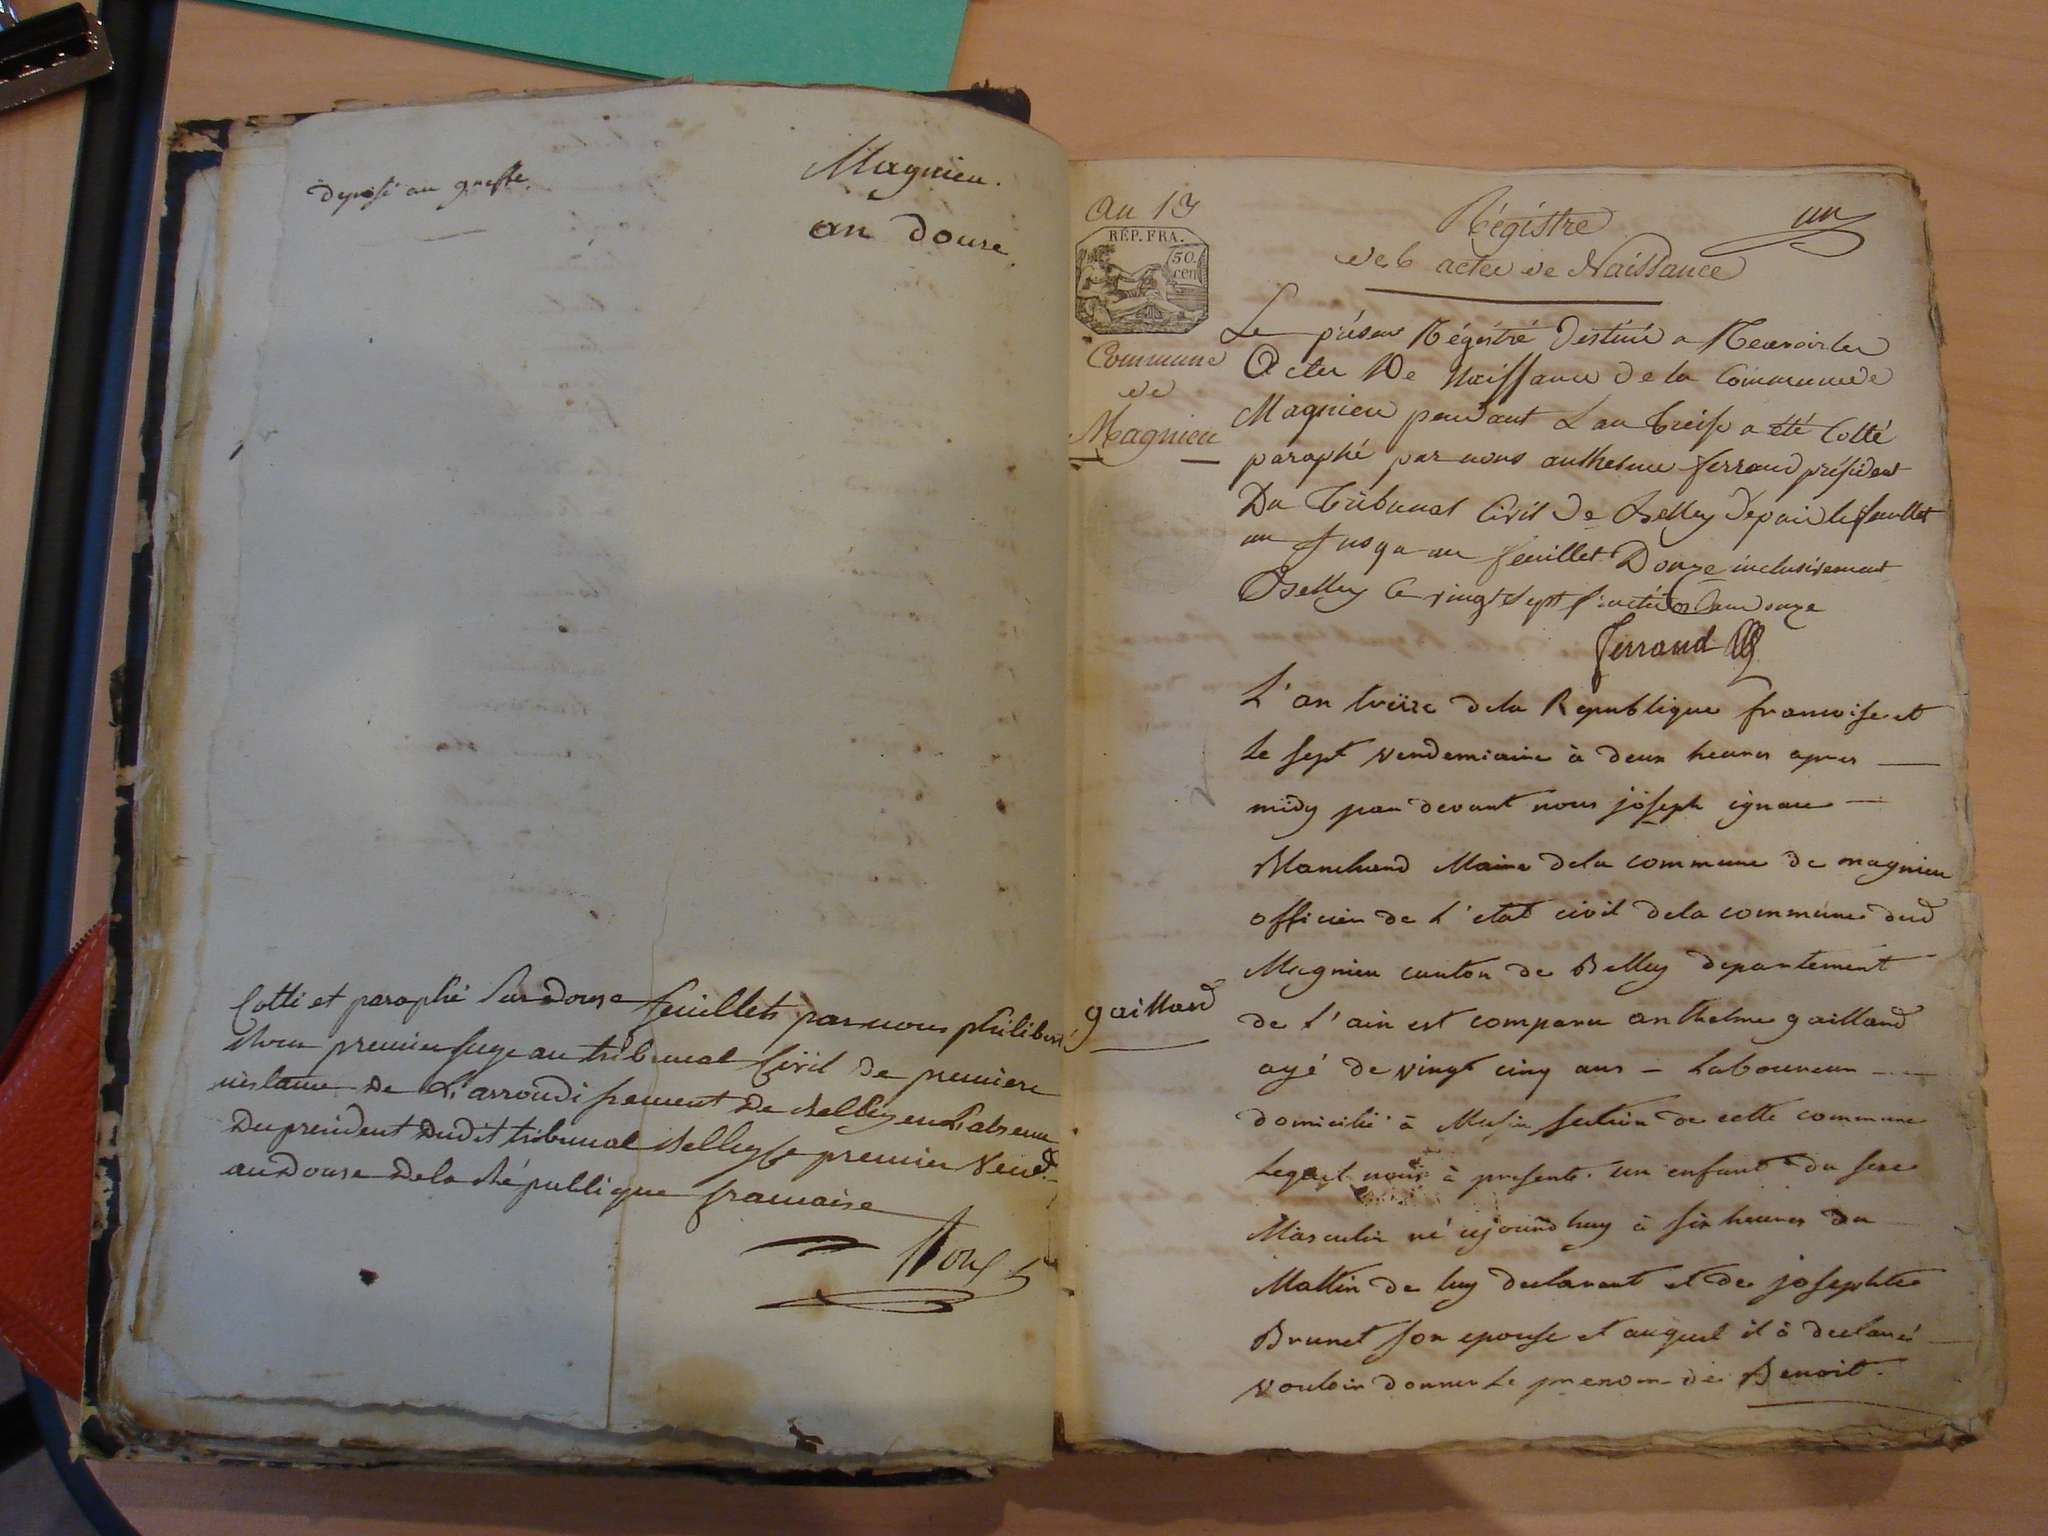 déposé au greffe.
Magnieu.
an douse
Cotté et paraphé Sur douse feuillets par nous philibert
premier juge au tribunal Civil de premiere
instance de L'arrondissement de Belley en L'absence
du president dudit tribunal Belley le premier Vend.
an douse de la République francaise
Roux
An 13
RÉP. FRA.
50.
cen
Commune
de
Magnieu
gaillard
un
Régistre
des actes de Naissance
Le présent Régistre destiné a Recevoir les
Actes De Naissance de la Commune de
Magnieu pendant L'an treise a été Cotté
paraphé par nous anthelme ferrand président
Du Tribunal Civil de Belley depuis le feuillet
un Jusqu au feuillet Douze inclusivement
Belley le vingt Sept fructidor an douze
ferrand
L'an treize dela Republique francoise et
le sept vendemiaire à deux heures apres
midy par devant nous joseph ignace
Blanchard Maire dela commune de magnieu
officier de l'etat civil dela commune dud
Magnieu canton de Belley departement
de l'ain est comparu anthelme gaillard
agé de vingt cinq ans - Laboureur
domicilié à Musin section de cette commune
Lequel nous à presenté un enfant du sexe
Masculin né ajourdhuy à six heures du
Mattin de luy declarant et de josephte
Brunet son epouse et auquel il à declaré
vouloir donner le prenom de Benoit.